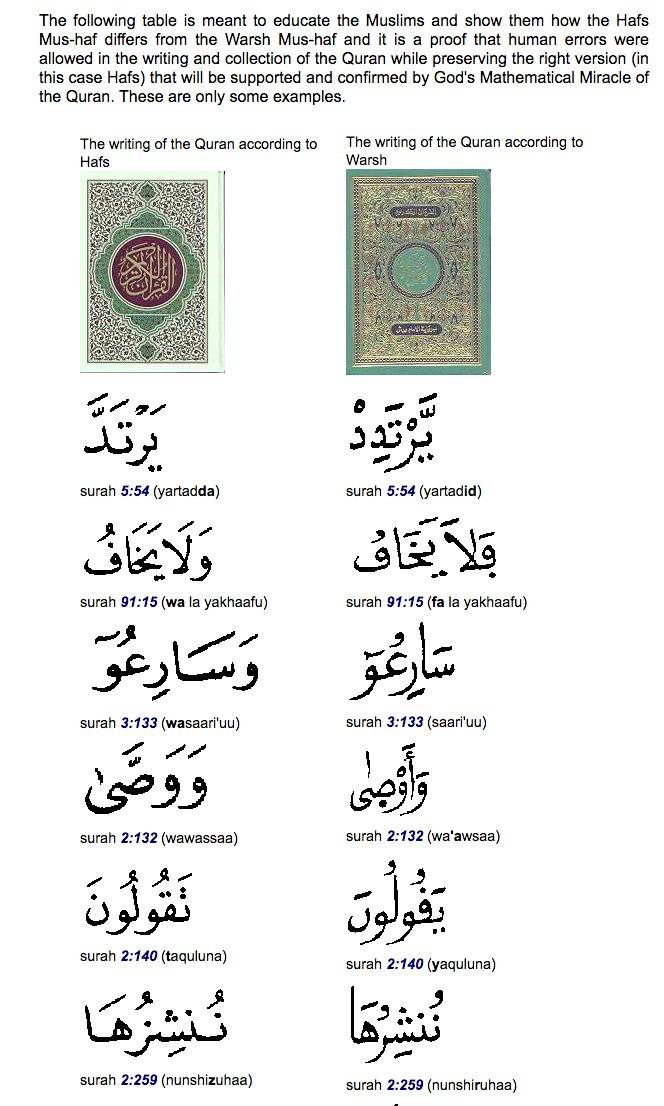 The following table is meant to educate the Muslims and show them how the Hafs
Mus-haf differs from the Warsh Mus-haf and it is a proof that human errors were
allowed in the writing and collection of the Quran while preserving the right version (in
this case Hafs) that will be supported and confirmed by God's Mathematical Miracle of
the Quran. These are only some examples.
The writing of the Quran according to
Hafs
The writing of the Quran according to
Warsh
القرآن الكريم
القرآن الكريم
يَرْتَدَّ
يَّرْتَدِدْ
surah 5:54 (yartadda)
surah 5:54 (yartadid)
وَلَا يَخَافُ
فَلَا يَخَافُ
surah 91:15 (wa la yakhaafu)
surah 91:15 (fa la yakhaafu)
وَسَارِعُوٓ
سَارِعُوٓ
surah 3:133 (wasaari'uu)
surah 3:133 (saari'uu)
وَوَصَّىٰ
وَأَوْصىٰ
surah 2:132 (wawassaa)
surah 2:132 (wa'awsaa)
تَقُولُونَ
يَقُولُونَ
surah 2:140 (taquluna)
surah 2:140 (yaquluna)
نُنشِزُهَا
نُنشِرُهَا
surah 2:259 (nunshizuhaa)
surah 2:259 (nunshiruhaa)